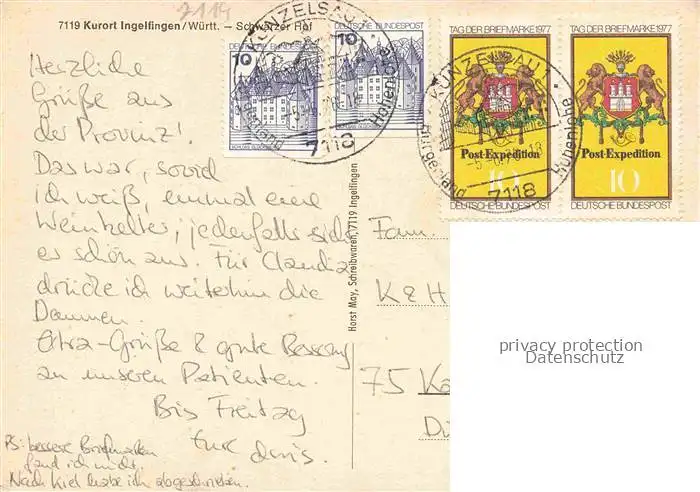 7119
7119 Kurort Ingelfingen/Württ. – Schwarzer Hof
Herzliche
Grüße aus
der Provinz!
Das war, soviel
ich weiß, einmal eine
Weinkelter, jedenfalls sieht
es schön aus. Für Claudia
drücke ich weiterhin die
Daumen.
Extra-Grüße & gute Besserung
an unseren Patienten.
Bis Freitag
eure
PS: bessere Briefmarken
fand ich nicht.
Nach Kiel habe ich abgeschrieben.
Horst May, Schreibwaren, 7119 Ingelfingen
DEUTSCHE BUNDESPOST
10
SCHLOSS GLÜCKSBURG
DEUTSCHE BUNDESPOST
10
KÜNZELSAU 1
Hohenlohe
7118
TAG DER BRIEFMARKE 1977
Post-Expedition
10
DEUTSCHE BUNDESPOST
TAG DER BRIEFMARKE 1977
Post-Expedition
10
DEUTSCHE BUNDESPOST
KÜNZELSAU 1
Hohenlohe
7118
Fam.
K & H
75 Ka
privacy protection
Datenschutz